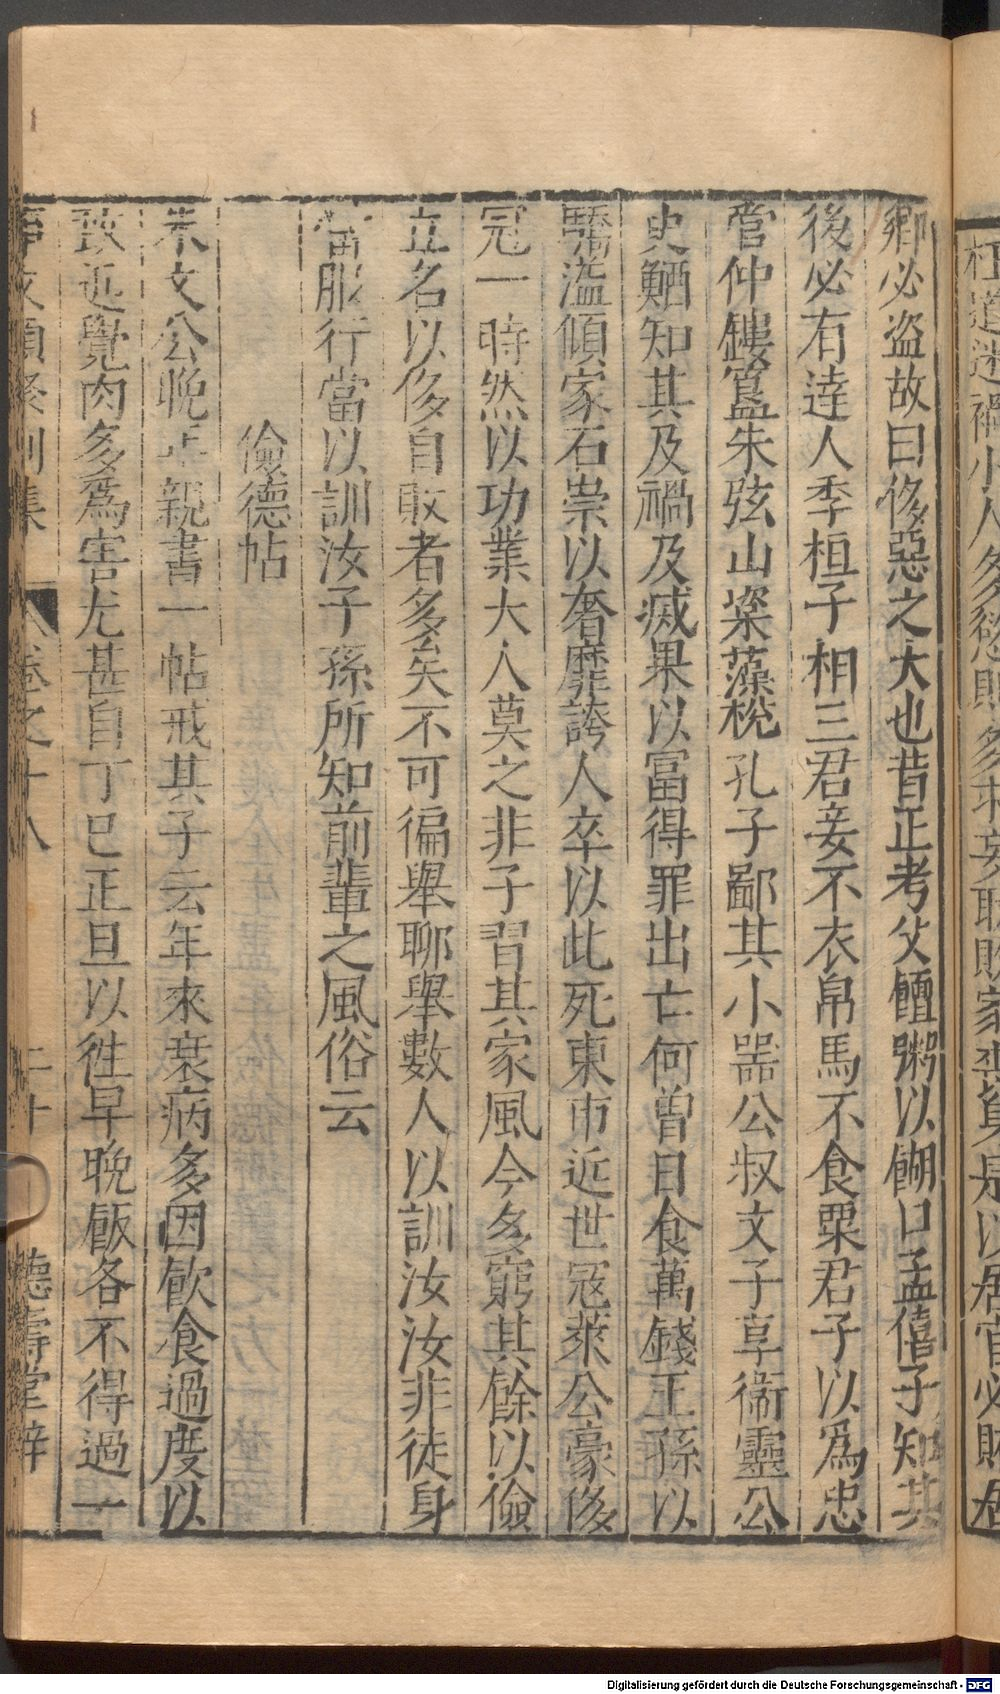 枉道速禍小人多慾則多求妄用敗家喪身是以居官必賄居
鄉必盜故曰侈惡之大也昔正考父饘粥以餬口孟僖子知其
後必有達人季桓子相三君妾不衣帛馬不食粟君子以爲忠
管仲鏤簋朱弦山楶藻梲孔子鄙其小噐公叔文子享衞靈公
史鰌知其及禍及戍果以富得罪出亡何曾日食萬錢王孫以
驕溢傾家石崇以奢靡誇人卒以此死東市近世冦萊公豪侈
冠一時然以功業大人莫之非子習其家風今多窮其餘以儉
立名以侈自敗者多矣不可徧舉聊舉數人以訓汝汝非徒身
當服行當以訓汝子孫所知前輩之風俗云
儉德帖
朱文公晚年親書一帖戒其子云年來衰病多因飲食過度以
致近覺肉多爲害尤甚自丁巳正旦以徃早晚飯各不得過一
事文類聚別集
卷之十八
二十
德壽堂梓
Digitalisierung gefördert durch die Deutsche Forschungsgemeinschaft - DFG